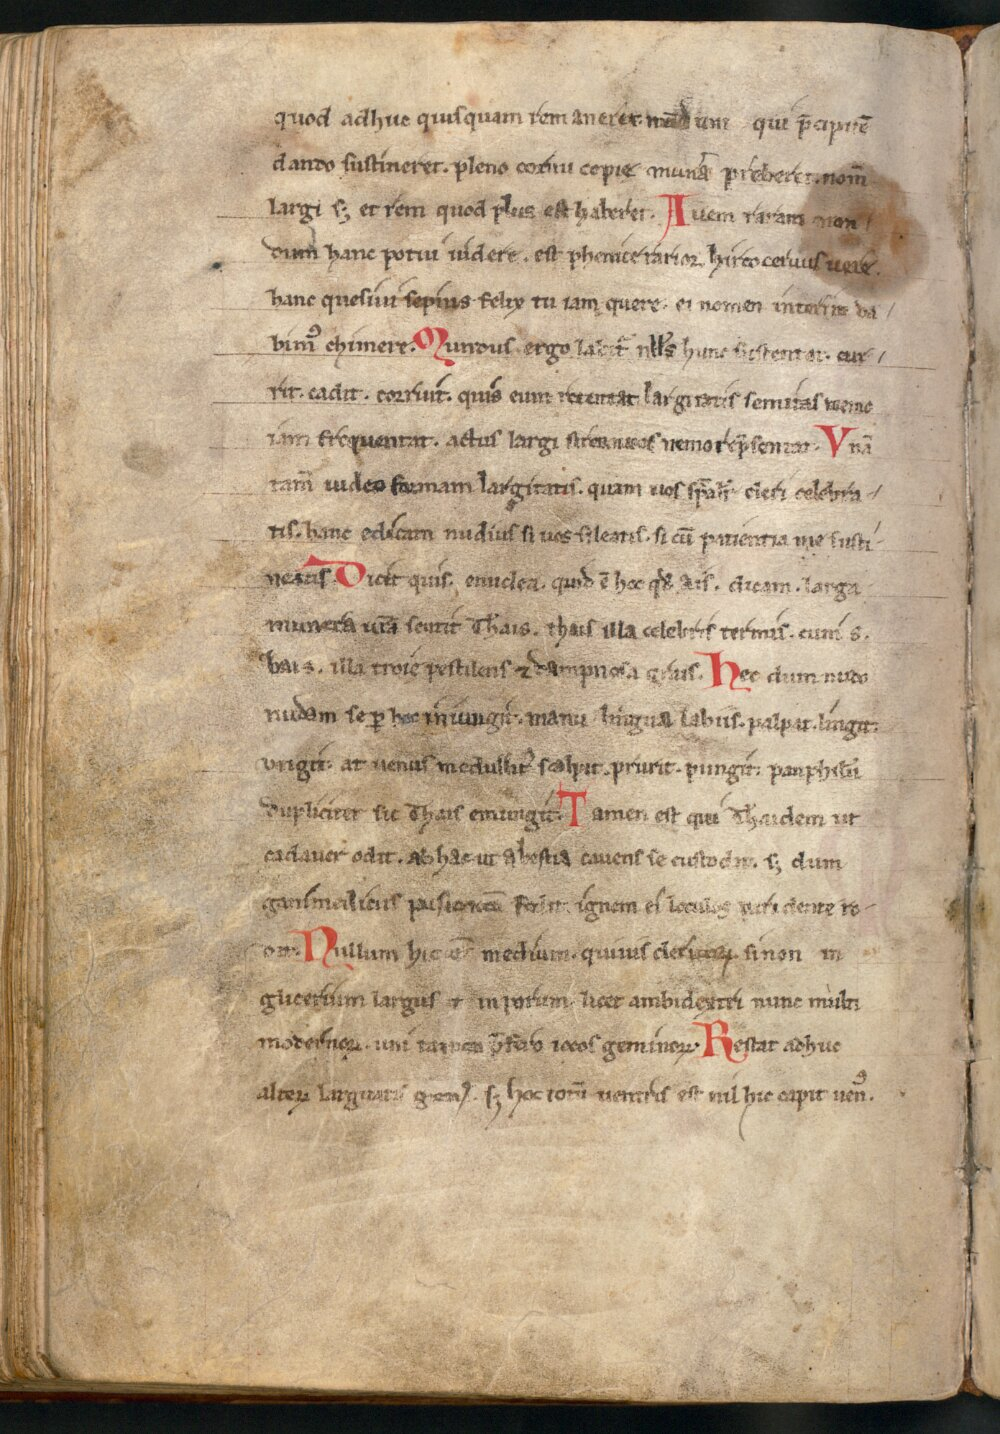 quod adhuc quisquam remaneret mūdum qui p̄cipitē
dando sustineret. pleno cornu copie munꝰa preberet. nom̄
largi sꝫ et rem quod plus est haberet. Auem raram non
dum hanc potui uidere. est phenice rarior hircoceruus uere.
hanc quesiui sepius felix tu iam quere. ei nomen interim da
bimꝰ chimere. Mundus ergo labit᷑ nll̄s hunc sustentat. cur
rit. cadit. corruit. quis eum retentat largitatis semitas nemo
iam frequentat. actus largi strennuos nemo rep̄sentat. Vnā
tam̄ uideo formam largitatis. quam uos sp̄alr̄ cleri celebra
tis. hanc edicam nudius si uos sileatis. si cū patientia me susti
neatis. Dicit quis. enuclea. quid ē hoc qd̄ ais. dicam. larga
munera uīa sentit Thais. thais illa celebris termis. cumis.
bais. illa troie pestilens ⁊ dampnosa grais. Hec dum nudo
nudam se ꝑ hoc iniungit. manu lingua labiis. palpat. lingit.
ungit. at uenus medullit᷑ scalpit. prurit. pungit. panphilū
dupliciter sic Thais emungit. Tamen est qui Thaidem ut
cadauer odit. ab hac ut a bestia cauens se custodit. sꝫ dum
ganimedicus ignem ei loculos dente ro
dit. Nullum hic ē medium. quiuis clericorꝝ si non in
glicerium largus ⁊ in sorum. licet ambidextri nunc multi
modernorꝝ. uni p̄fero iocos geminorꝝ. Restat adhuc
alterꝝ largitatis genꝰ. sꝫ hoc totū uentris est nil hic capit uenꝰ.